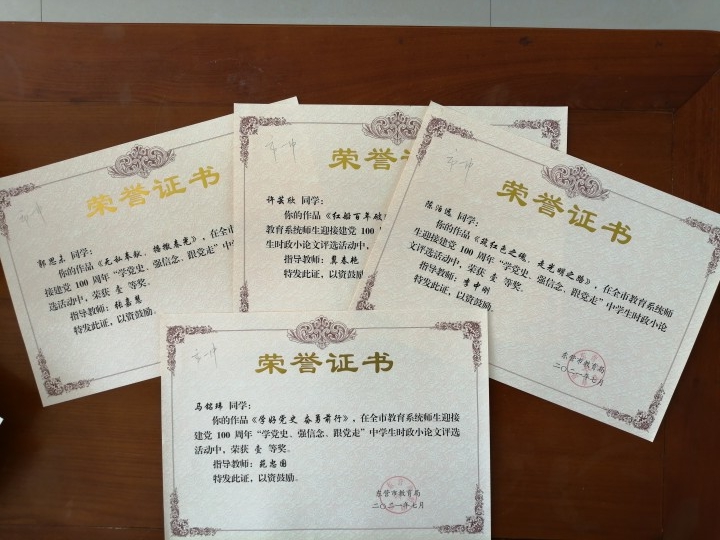 荣誉证书
郭思東 同学:
你的作品《无私奉献、播撒春光》,在全
接建党 100 周年“学党史、强信念、跟党走”中
选活动中,荣获 壹 等奖。
指导教师:张嘉慧
特发此证,以资鼓励。
荣誉证
许芸欣 同学:
你的作品《红船百年破
教育系统师生迎接建党 100
走”中学生时政小论文评选活动中,
指导教师:冀春艳
特发此证,以资鼓励。
荣誉证书
陈泊远 同学:
你的作品《筑红色之魂,走光明之路》,在全市教育系统师
生迎接建党 100 周年“学党史、强信念、跟党走”中学生时政小论
文评选活动中,荣获 壹 等奖。
指导教师:李中刚
特发此证,以资鼓励。
东营市教育局
二〇二一年七月
荣誉证书
马铭玮 同学:
你的作品《学好党史 奋勇前行》,在全市教育系统师生迎接
建党 100 周年“学党史、强信念、跟党走”中学生时政小论文评选
活动中,荣获 壹 等奖。
指导教师:苑忠国
特发此证,以资鼓励。
东营市教育局
二〇二一年七月